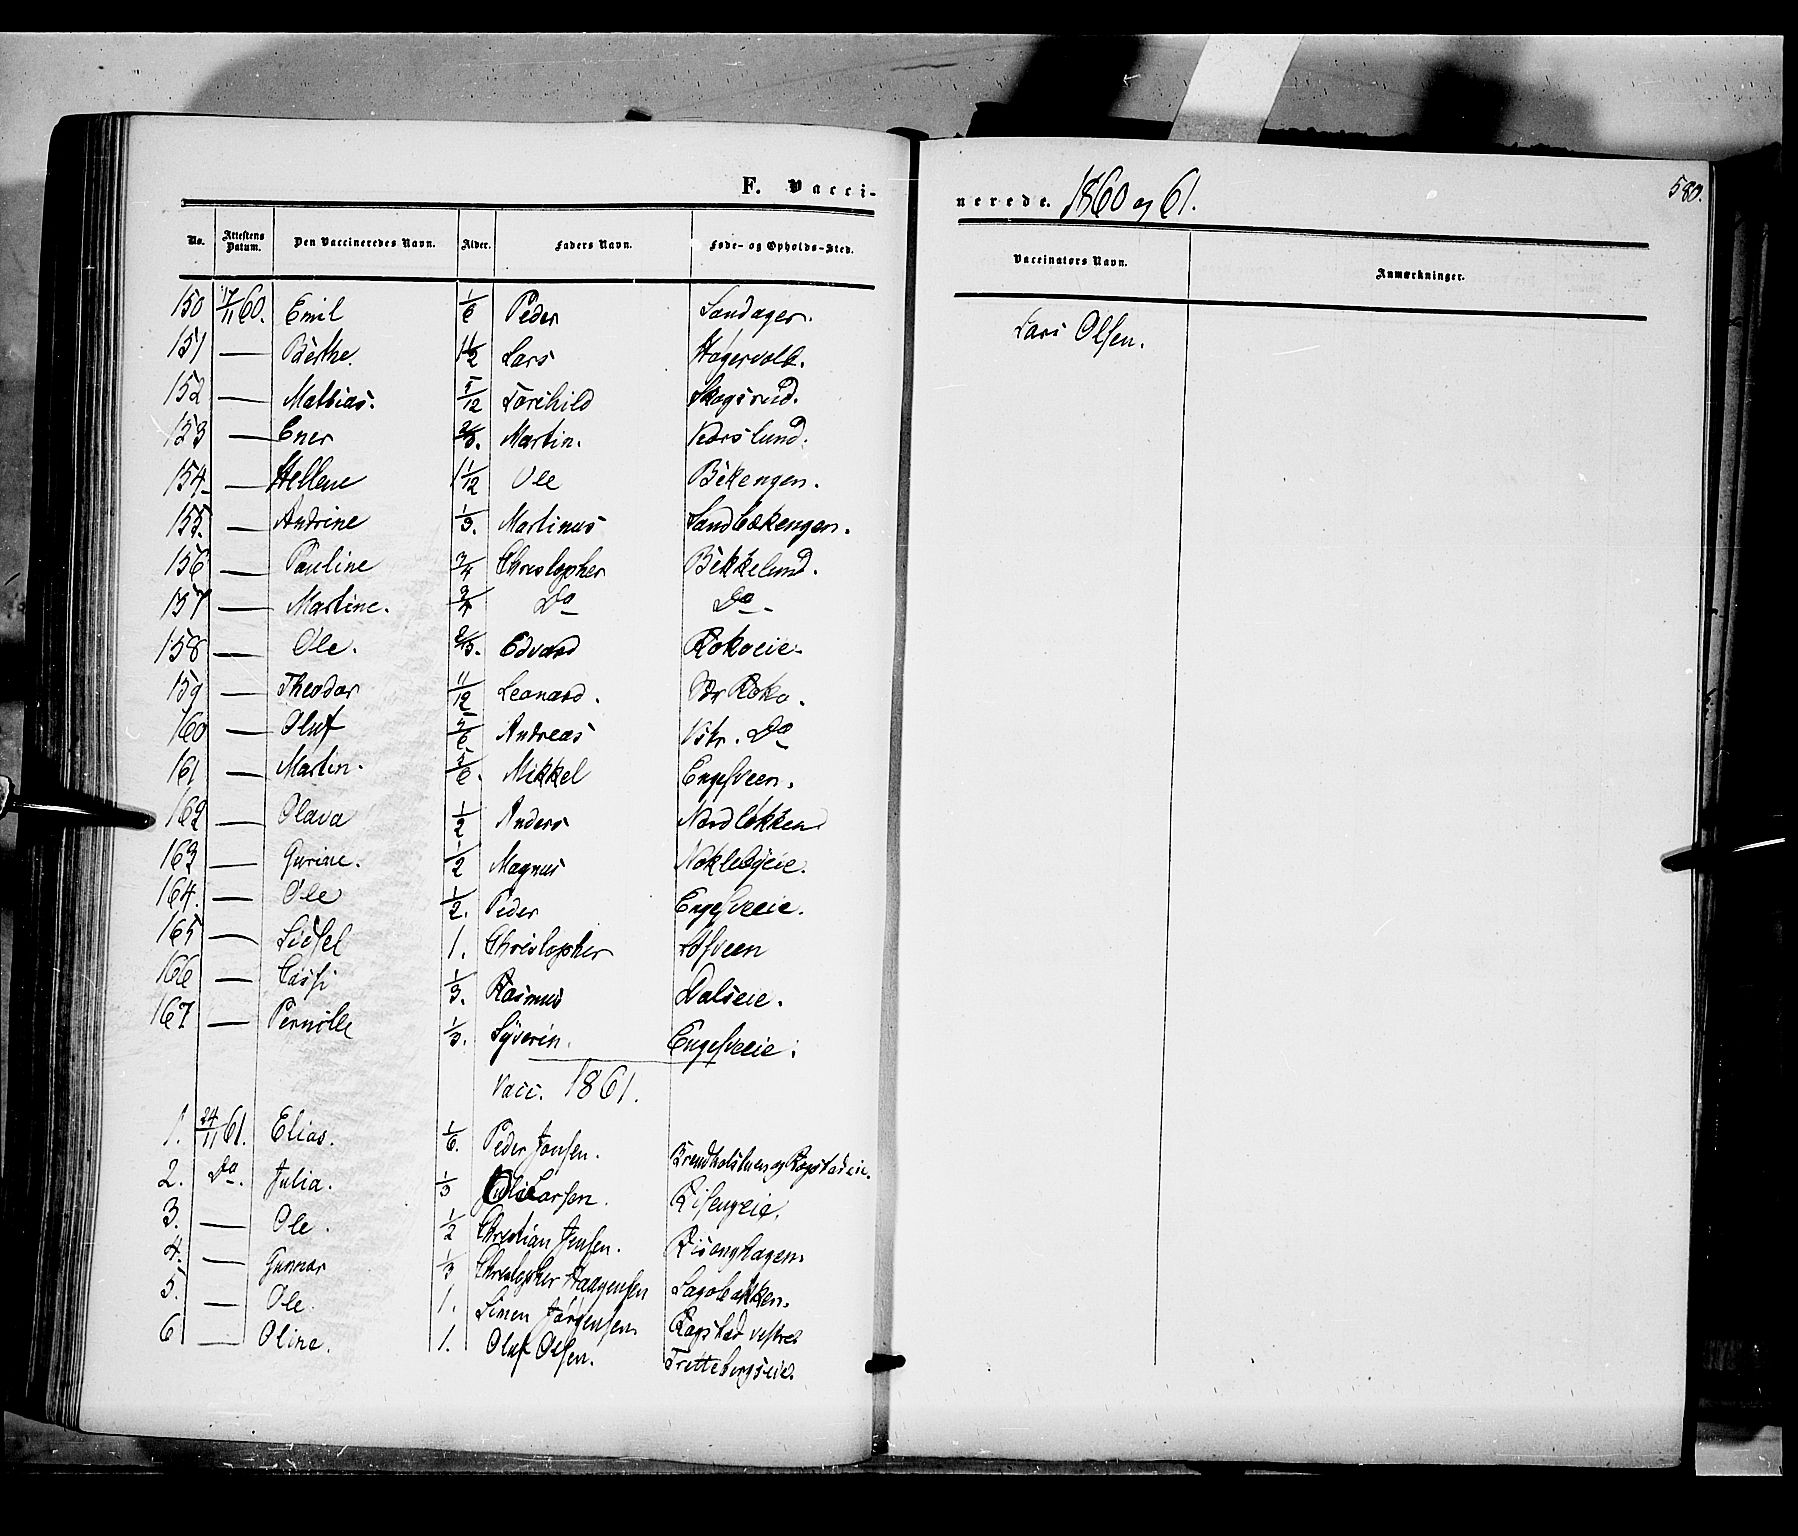 F. Vacci-
nerede. 1860 og 61.
580.
No. Attestens Datum. Den Vaccineredes Navn. Alder. Faders Navn. Føde- og Opholds-Sted. Vaccinators Navn. Anmærkninger.
150 17/11 60. Emil 1/6 Peder Sandager. Lars Olsen.
151 — Berthe 1 1/2 Lars
152 — Mathias. 5/12 Torchild Skogsrud.
153 — Ener 2/3. Martin.
154 — Hellene 1 1/12 Ole Bekengen.
155. — Andrine 1/3. Martinus Sandbækengen.
156 — Pauline 3/4 Christopher Bekkelund.
157 — Martine. 3/4 Do Do
158 — Ole. 2/3. Edvard Rokoeie
159 — Theodor 11/12 Leonard. Roko.
160 — Oluf 5/6 Andreas Vstr. Do
161 — Martin. 5/6. Mikkel Engesveen.
162 — Olava 1/2 Anders Nordløkken
163 — Gurine. 1/2 Magnus Noklebyeie.
164. — Ole 1/2. Peder Engesveeie.
165 — 1. Christopher
166 — 1/3. Rasmus Dalseie.
167 — Pernille 1/3. Syverin. Engesveeie.
Vacc. 1861.
1. 24/11 61. Elias. 1/6. Peder Jonsen. og Rogstadeie.
2. Do. Julia. 1/3 Larsen. Risengeie.
3. — Ole. 1/2 Christian Jensen. Risenghagen.
4. — Gunnar 1/3 Christopher Haagensen
5. — Ole. 1. Simen Jørgensen Rogstad vestre
6 — Oline. 1. Oluf Olsen. Trettebergseie.